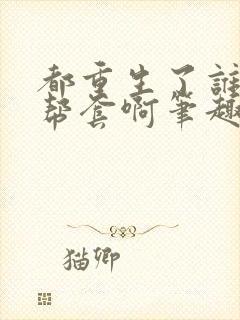 都重生了誰
帮套啊筆趣
猫卿